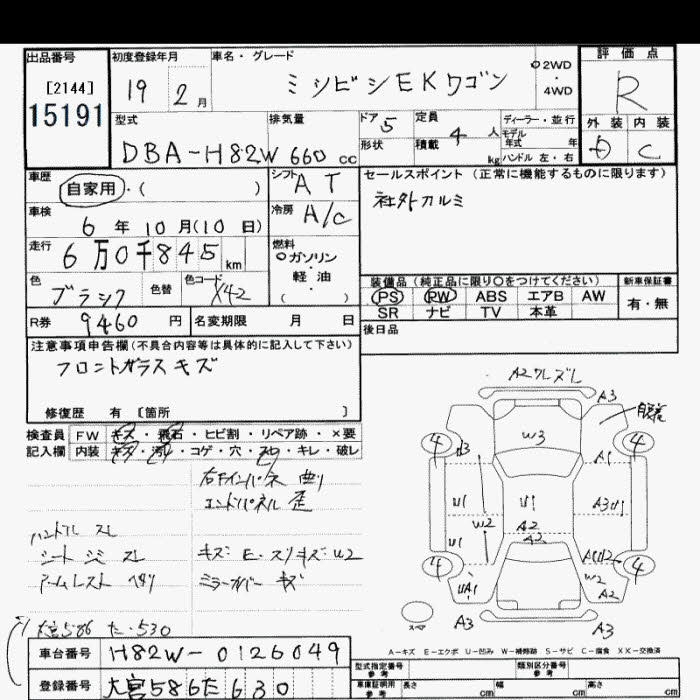 出品番号
[2144]
15191
初度登録年月
19 2月
車名・グレード
ミツビシEKワゴン
2WD
・
4WD
評価点
R
外装 内装
D C
型式
DBA-H82W
排気量
660cc
ドア 5
形状
定員 4人
積載 kg
ディーラー・並行
モデル年式 年
ハンドル 左・右
車歴
自家用・( )
シフト AT
車検
6年10月(10日)
冷房 A/C
走行
6万0千845km
燃料
ガソリン
・
軽・油
( )
色
ブラック
色替
色コード
X42
R券 9460円
名変期限 月 日
セールスポイント(正常に機能するものに限ります)
社外アルミ
装備品(純正品に限り〇をつけてください)
PS RW ABS エアB AW
SR ナビ TV 本革
新車保証書
有・無
後日品
注意事項申告欄(不具合内容等は具体的に記入して下さい)
フロントガラスキズ
修復歴 有 [箇所 ]
検査員 FW キズ・飛石・ヒビ割・リペア跡・×要
記入欄 内装 キズ・汚レ・コゲ・穴・スレ・キレ・破レ
右Fインパネ 曲り
エンドパネル 歪
ハンドル スレ
シート シミ スレ
アームレスト ヘタリ
キズ:E・スリキズ:W2
ミラーカバー キズ
大宮586 た・530
車台番号 H82W-0126049
登録番号 大宮586た630
A2ワレズレ
A3
4
W3
4
B3
A1
U1
U1
A3U1
W2
A2
U1
A2
4
A1U2
4
W2
UA1
A2
スペア
A3
A3
A-キズ E-エクボ U-凹み W-補修跡 S-サビ C-腐食 XX-交換済
型式指定番号
参考
類別区分番号
参考
車庫証明用
参考
長さ cm 幅 cm 高さ cm